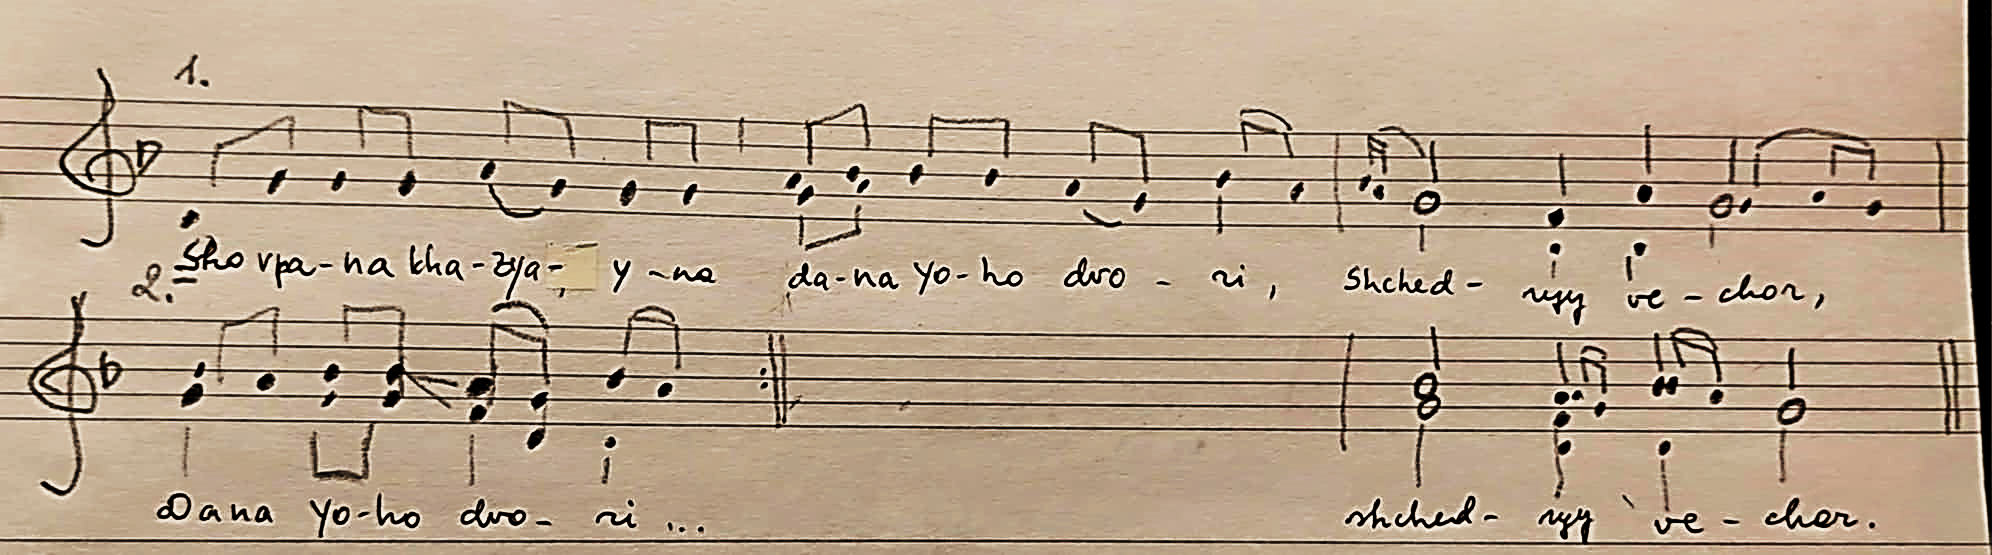 1.
Sho vpa-na kha-zya-, y-na da-na yo-ho dvo-ri, Shched-ryy ve-chor,
2.
Dana yo-ho dvo-ri... shched-ryy ve-chor.